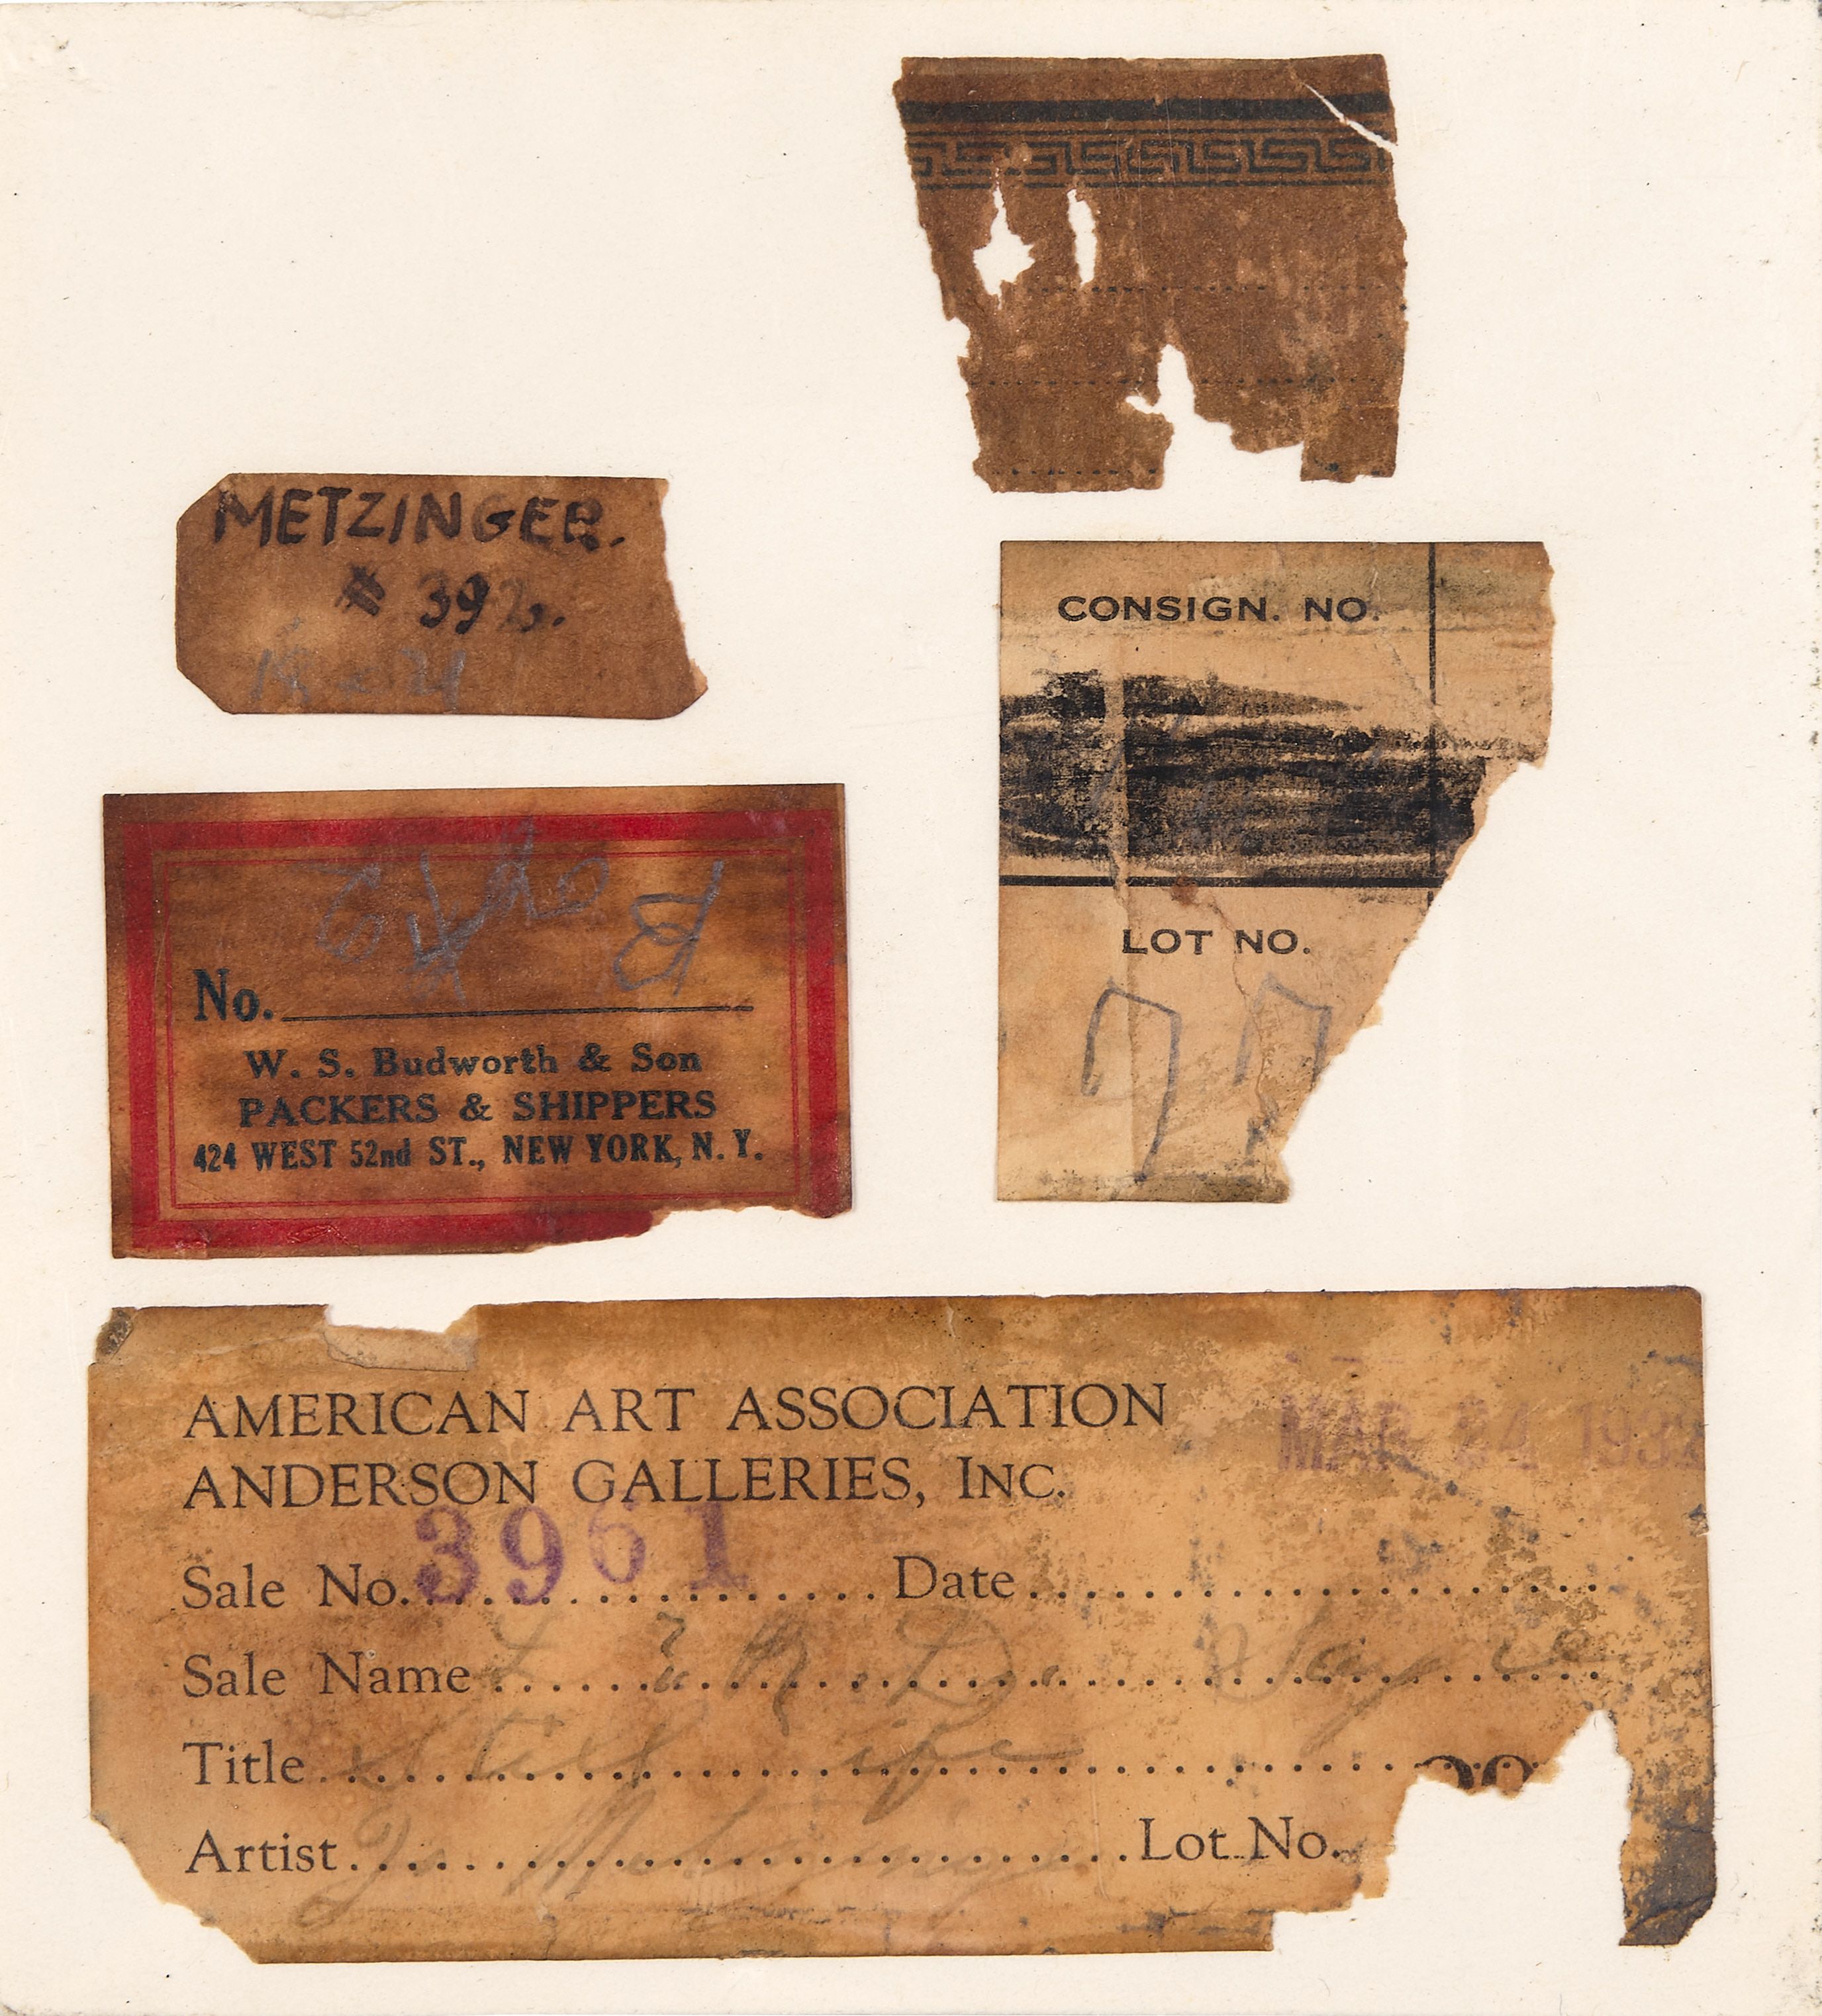 METZINGER.
# 392.
CONSIGN. NO.
LOT NO.
77
No.
W. S. Budworth & Son
PACKERS & SHIPPERS
424 WEST 52nd ST., NEW YORK, N. Y.
AMERICAN ART ASSOCIATION
MAR 24 1932
ANDERSON GALLERIES, INC.
Sale No. 3961 Date
Sale Name
Title Still life
Artist J. Metzinger Lot No.